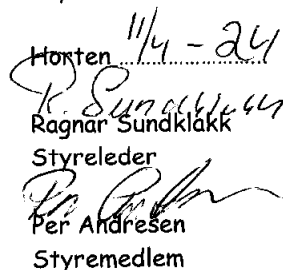 Horten 11/4 - 24
R. Sundklakk
Ragnar Sundklakk
Styreleder
Per Andresen
Styremedlem